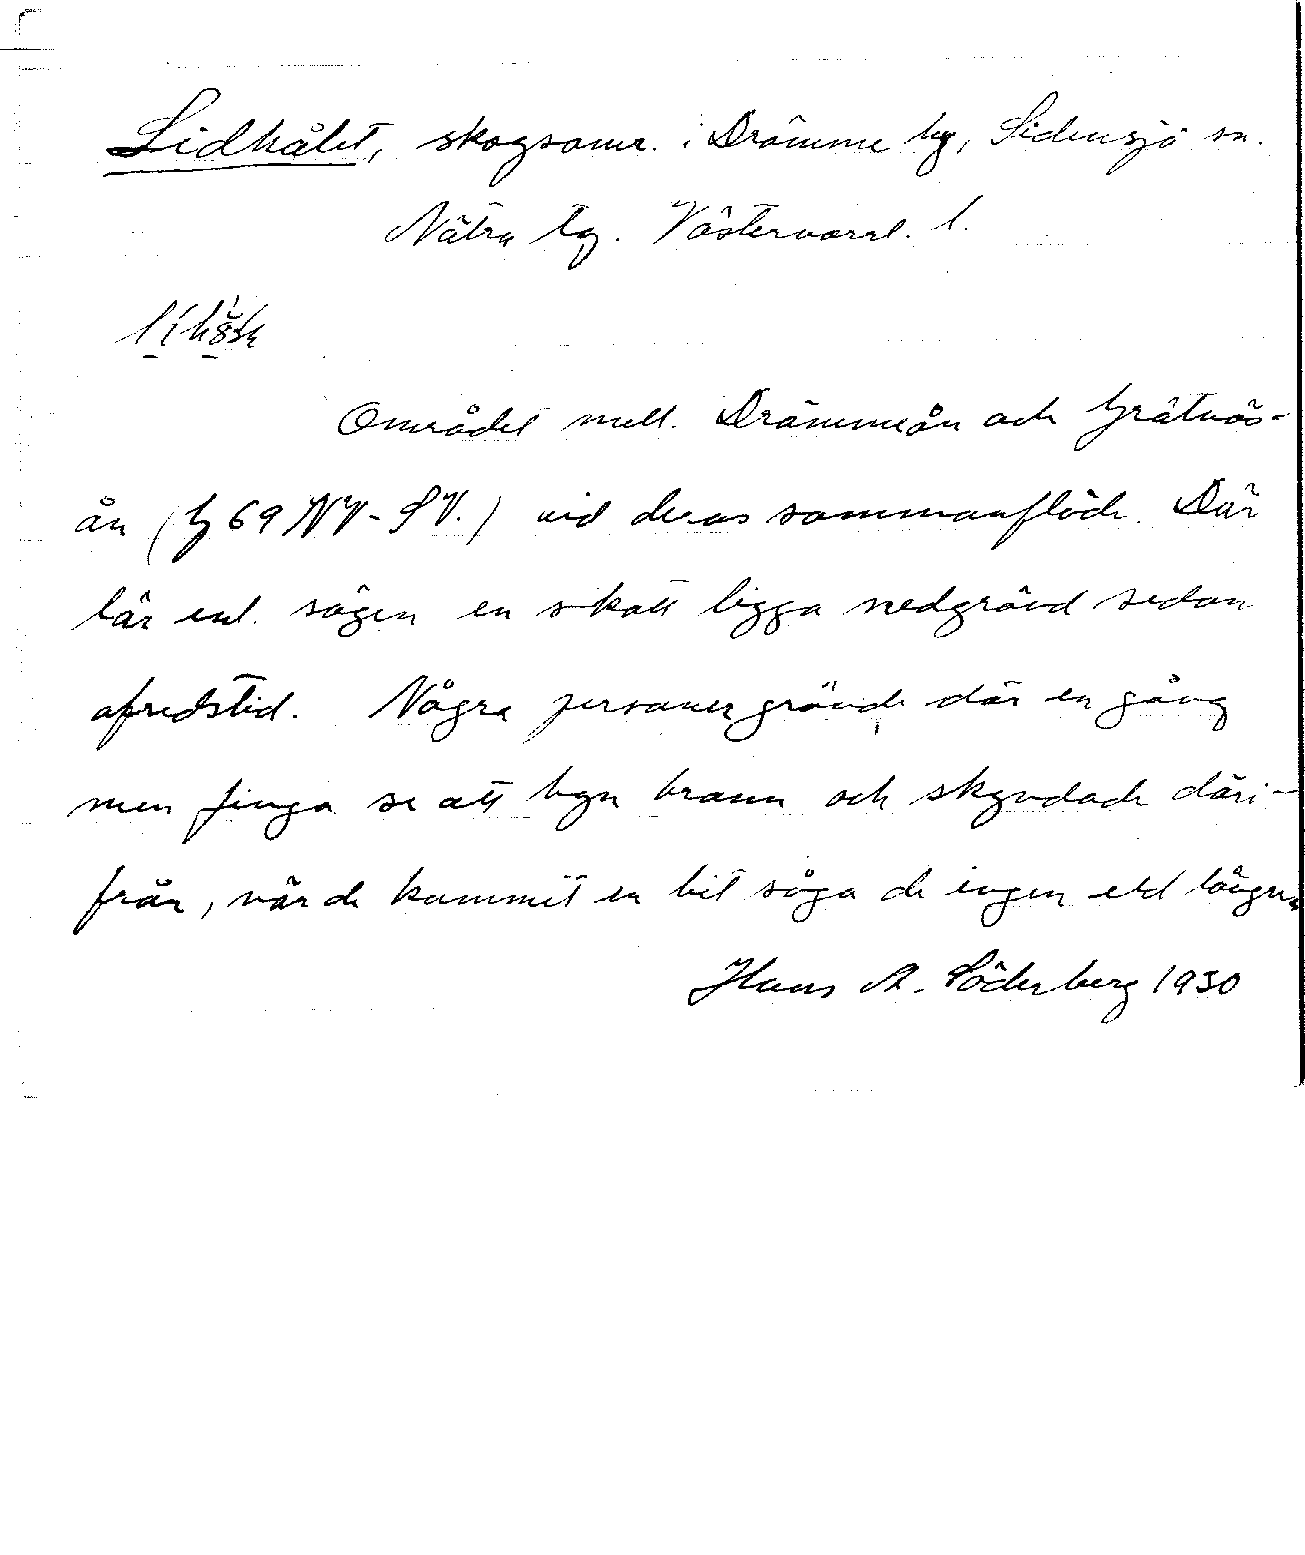 Lidhålet, skogsomr. i Drömme by, Sidensjö sn.
Nätra tg. Västernorrl. l.
Området mell. Drömmeån och Grätnäs-
ån (G 69 NV - SV.) vid deras sammanflöde. Där
lär enl. sägen en skatt ligga nedgrävd sedan
ofredstid. Några personer grävde där en gång
men finga se att byn brann och skyndade däri-
från, när de kommit en bit såga de ingen eld längre
Hans A. Söderberg 1930